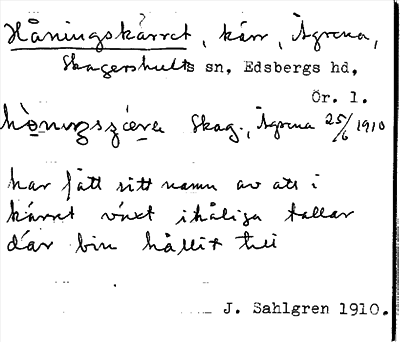 Håningskärret, kärr, Ågrena,
Skagershults sn, Edsbergs hd,
Ör. l.
Skag., Ågrena 25/6 1910
har fått sitt namn av att i
kärret växt ihåliga tallar
där bin hållit till
J. Sahlgren 1910.